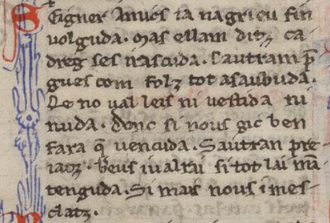 SEigner Amics ia nagrieu fin
uolguda. Mas ellam ditz ca
dreg ses nascuda. Sautram p̄
gues com folz tot asaubuda.
Le no ual leis ni uestida ni
nuda. Donc si nous gic ben
fara q̄ uencuda. Sautran pre
iatz. Beus iualrai si tot lai mā
tenguda. Si mais nous imes
clatz.